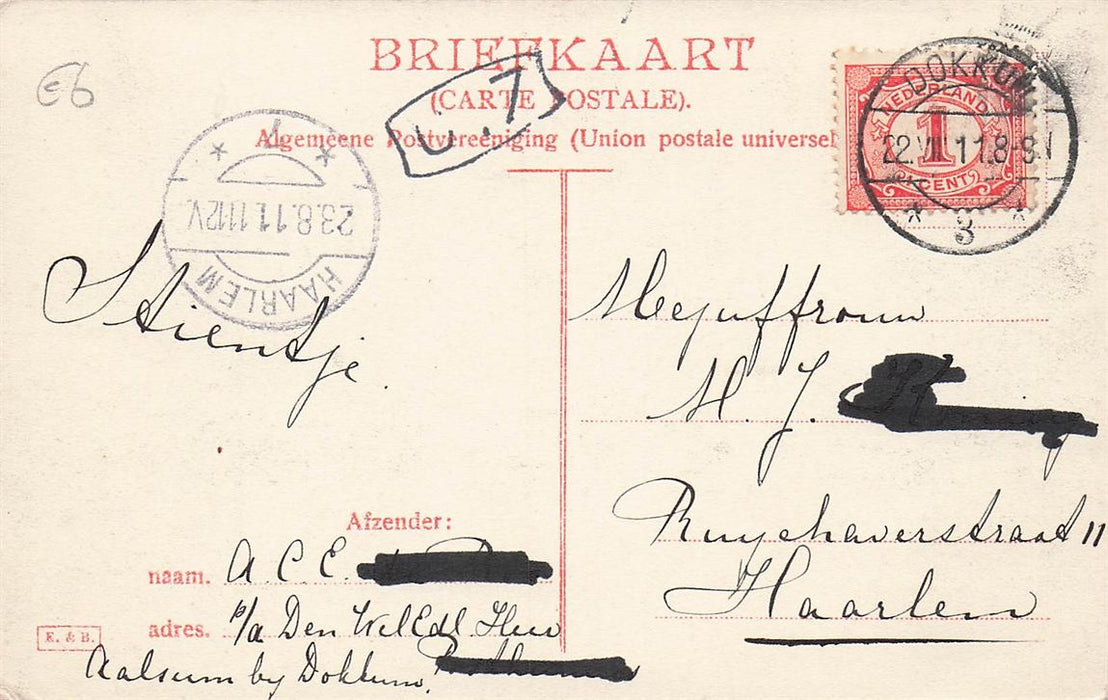 BRIEFKAART
(CARTE POSTALE).
Algemeene Postvereeniging (Union postale universel
E6
U.7
NEDERLAND
1
CENT
DOKKUM
22.VIII 11.8-9.N
3
23.8.11.11-12V.
HAARLEM
Stientje.
Mejuffrouw
M. J.
Ruychaverstraat 11
Haarlem
Afzender:
naam. A. C. E.
adres. p/a Den WelEdl. Heer
Aalsum by Dokkum.
E. & B.